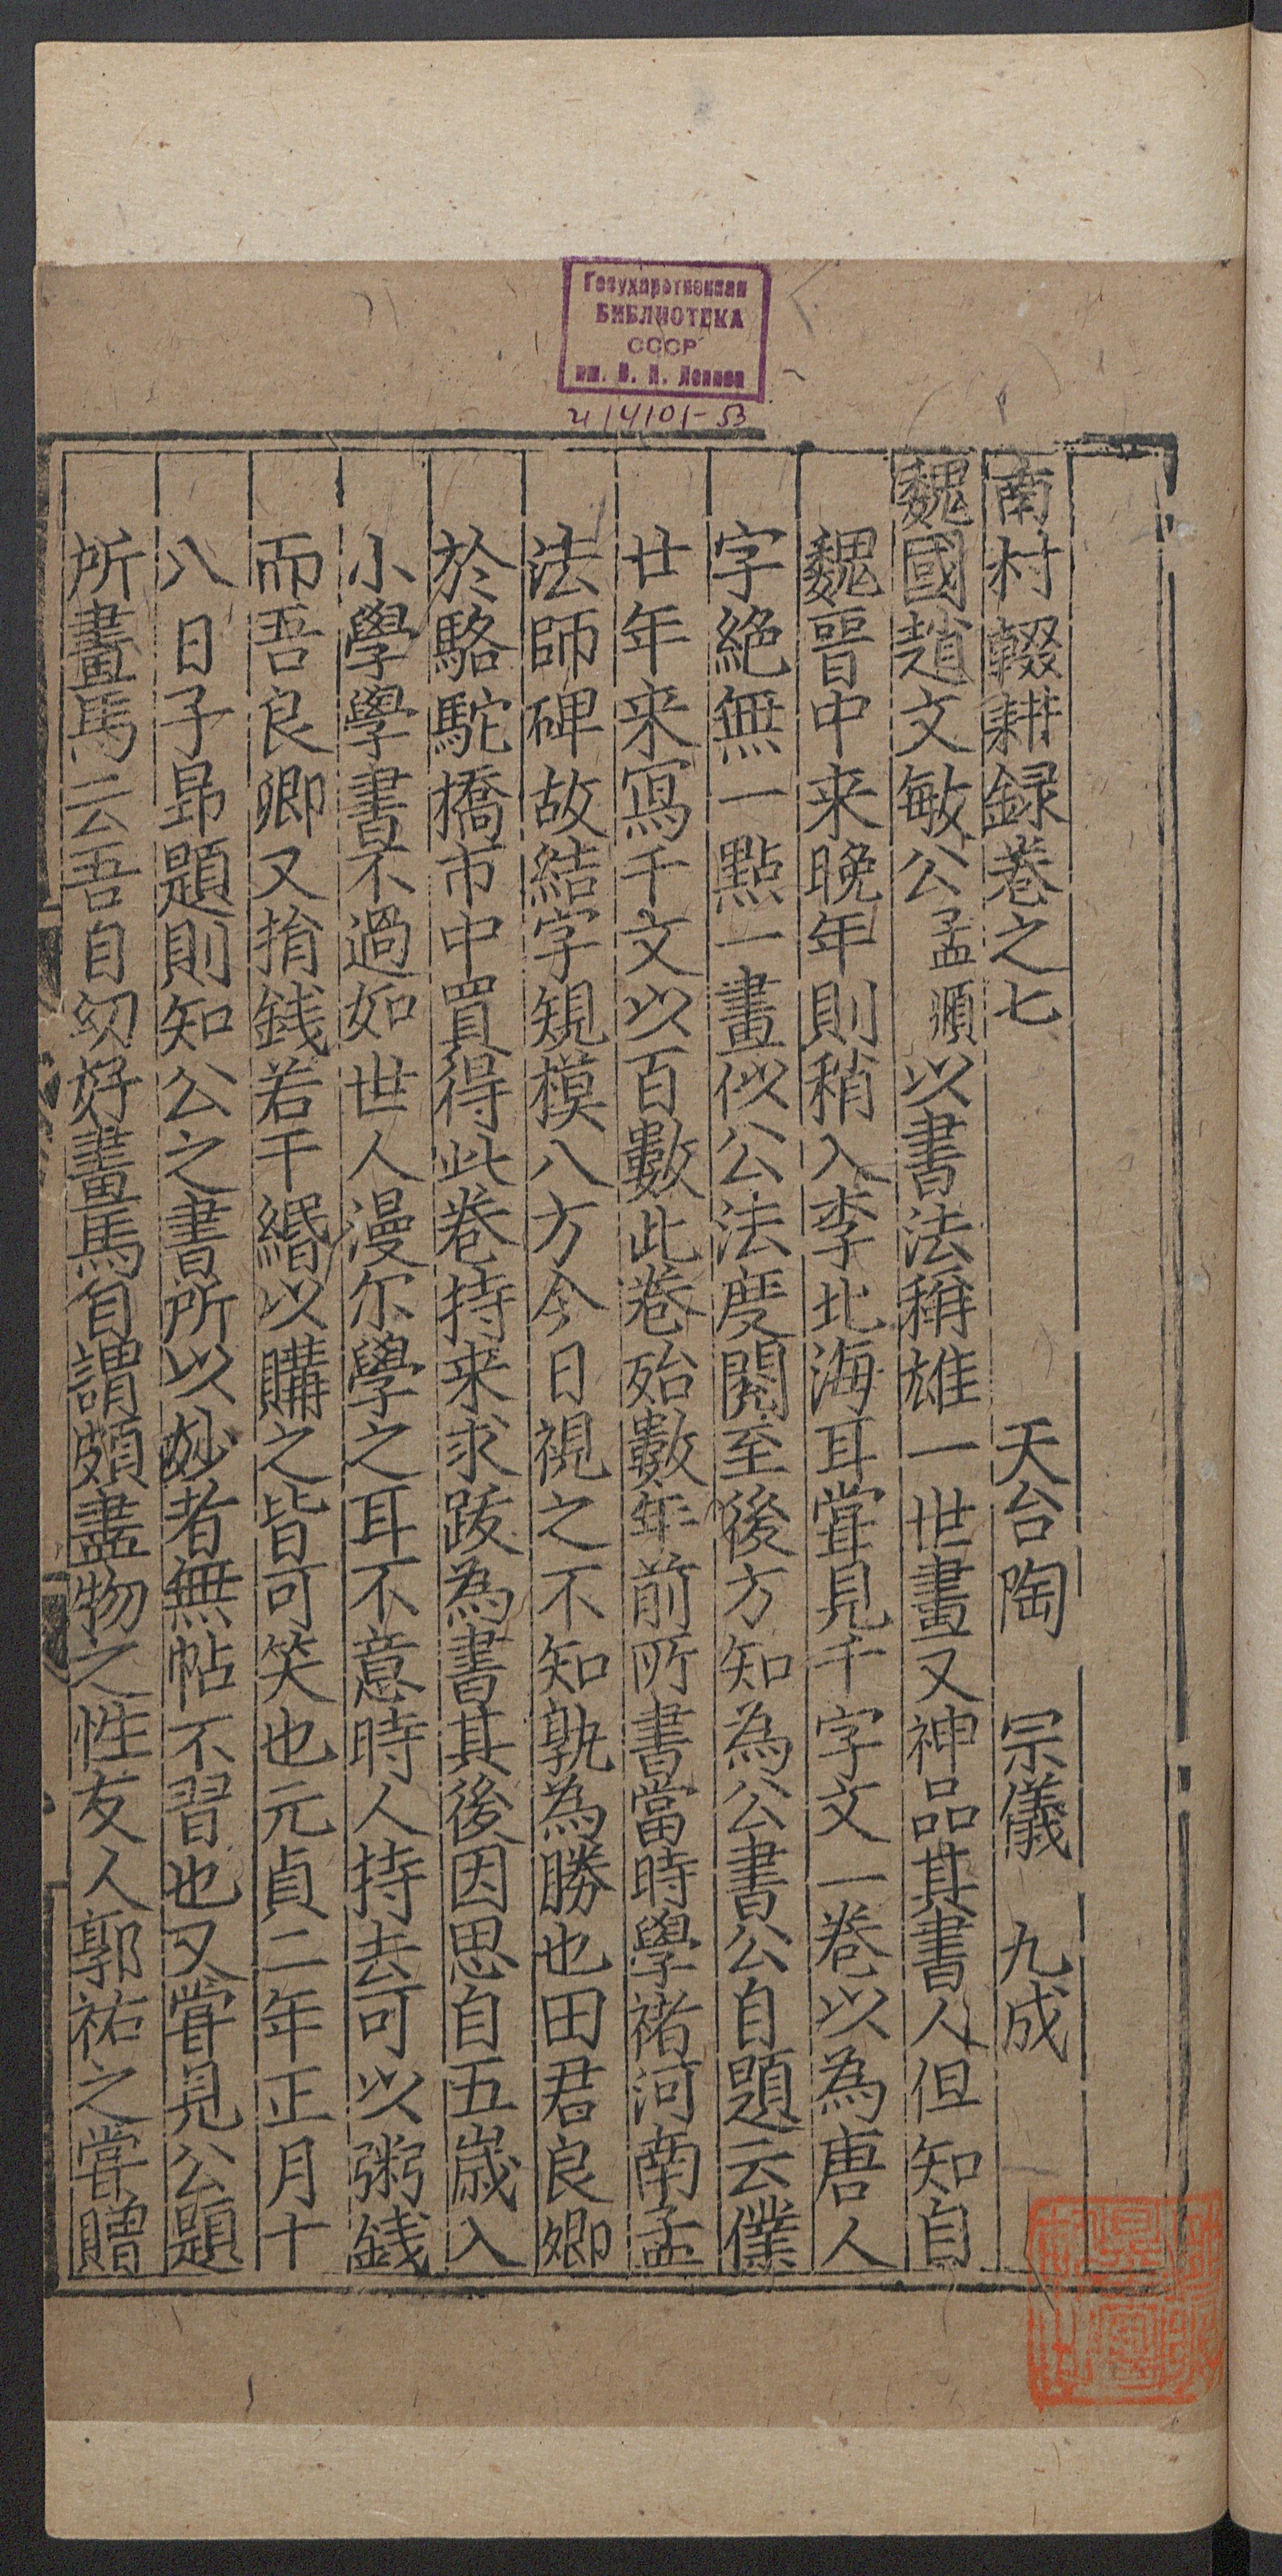 Государственная
БИБЛИОТЕКА
СССР
им. В. И. Ленина
414101-53
南村輟耕録卷之七 天台陶 宗儀 九成
魏國趙文敏公孟頫以書法稱雄一世畫又神品其書人但知自
魏晉中来晚年則稍入李北海耳甞見千字文一卷以為唐人
字絶無一點一畫似公法度閱至後方知為公書公自題云僕
廿年来寫千文以百數此卷殆數年前所書當時學褚河南孟
法師碑故結字規模八方今日視之不知孰為勝也田君良卿
於駱駝橋市中買得此卷持来求跋為書其後因思自五歲入
小學學書不過如世人漫尔學之耳不意時人持去可以粥錢
而吾良卿又捐錢若干緡以購之皆可笑也元貞二年正月十
八日子昻題則知公之書所以妙者無帖不習也又甞見公題
所畫馬云吾自幼好畫馬自謂頗盡物之性友人郭祐之甞贈